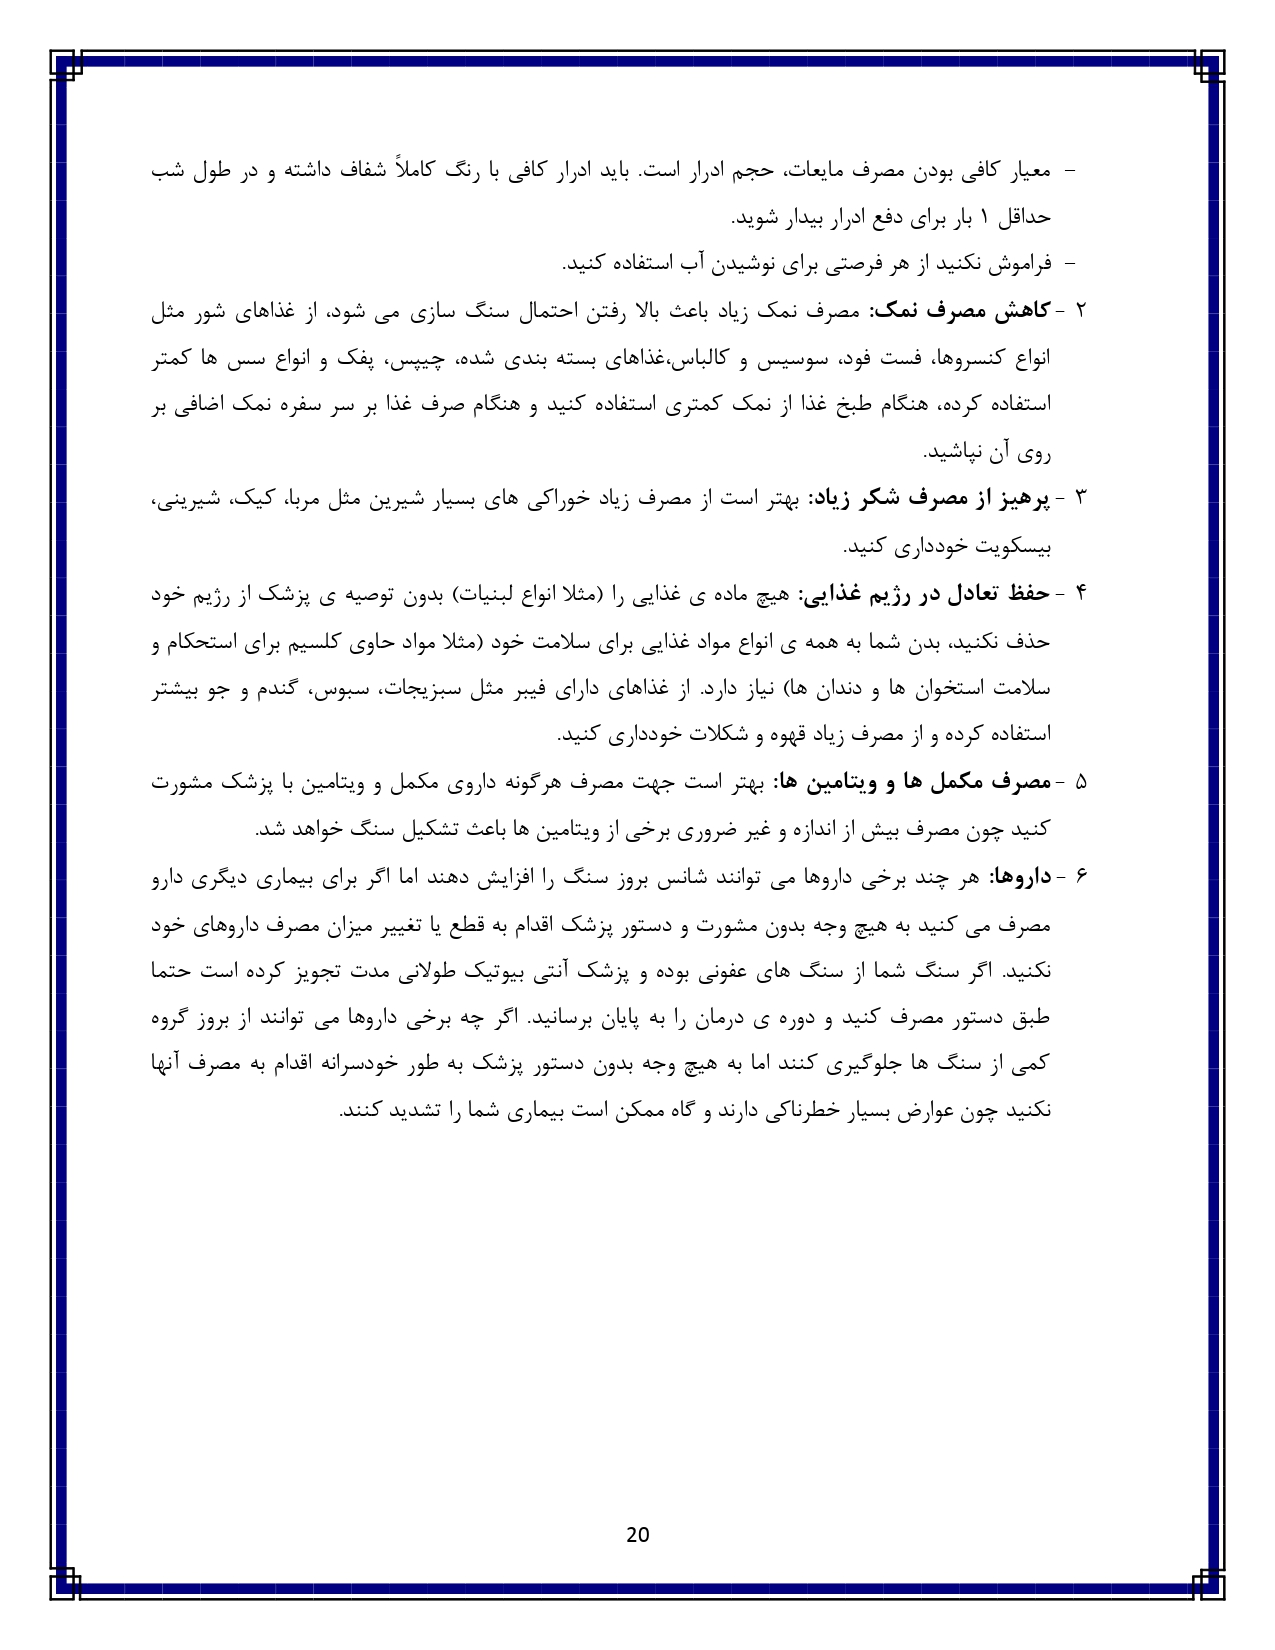 - معیار کافی بودن مصرف مایعات، حجم ادرار است. باید ادرار کافی با رنگ کاملاً شفاف داشته و در طول شب
حداقل ۱ بار برای دفع ادرار بیدار شوید.
- فراموش نکنید از هر فرصتی برای نوشیدن آب استفاده کنید.
۲ - کاهش مصرف نمک: مصرف نمک زیاد باعث بالا رفتن احتمال سنگ سازی می شود، از غذاهای شور مثل
انواع کنسروها، فست فود، سوسیس و کالباس،غذاهای بسته بندی شده، چیپس، پفک و انواع سس ها کمتر
استفاده کرده، هنگام طبخ غذا از نمک کمتری استفاده کنید و هنگام صرف غذا بر سر سفره نمک اضافی بر
روی آن نپاشید.
۳ - پرهیز از مصرف شکر زیاد: بهتر است از مصرف زیاد خوراکی های بسیار شیرین مثل مربا، کیک، شیرینی،
بیسکویت خودداری کنید.
۴ - حفظ تعادل در رژیم غذایی: هیچ ماده ی غذایی را (مثلا انواع لبنیات) بدون توصیه ی پزشک از رژیم خود
حذف نکنید، بدن شما به همه ی انواع مواد غذایی برای سلامت خود (مثلا مواد حاوی کلسیم برای استحکام و
سلامت استخوان ها و دندان ها) نیاز دارد. از غذاهای دارای فیبر مثل سبزیجات، سبوس، گندم و جو بیشتر
استفاده کرده و از مصرف زیاد قهوه و شکلات خودداری کنید.
۵ - مصرف مکمل ها و ویتامین ها: بهتر است جهت مصرف هرگونه داروی مکمل و ویتامین با پزشک مشورت
کنید چون مصرف بیش از اندازه و غیر ضروری برخی از ویتامین ها باعث تشکیل سنگ خواهد شد.
۶ - داروها: هر چند برخی داروها می توانند شانس بروز سنگ را افزایش دهند اما اگر برای بیماری دیگری دارو
مصرف می کنید به هیچ وجه بدون مشورت و دستور پزشک اقدام به قطع یا تغییر میزان مصرف داروهای خود
نکنید. اگر سنگ شما از سنگ های عفونی بوده و پزشک آنتی بیوتیک طولانی مدت تجویز کرده است حتما
طبق دستور مصرف کنید و دوره ی درمان را به پایان برسانید. اگر چه برخی داروها می توانند از بروز گروه
کمی از سنگ ها جلوگیری کنند اما به هیچ وجه بدون دستور پزشک به طور خودسرانه اقدام به مصرف آنها
نکنید چون عوارض بسیار خطرناکی دارند و گاه ممکن است بیماری شما را تشدید کنند.
20